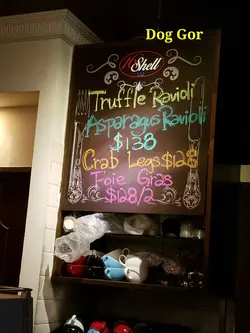 Dog Gor
Shell
Truffle Ravioli
Asparagus Ravioli
$138
Crab Legs $128
Foie Gras
$128/2